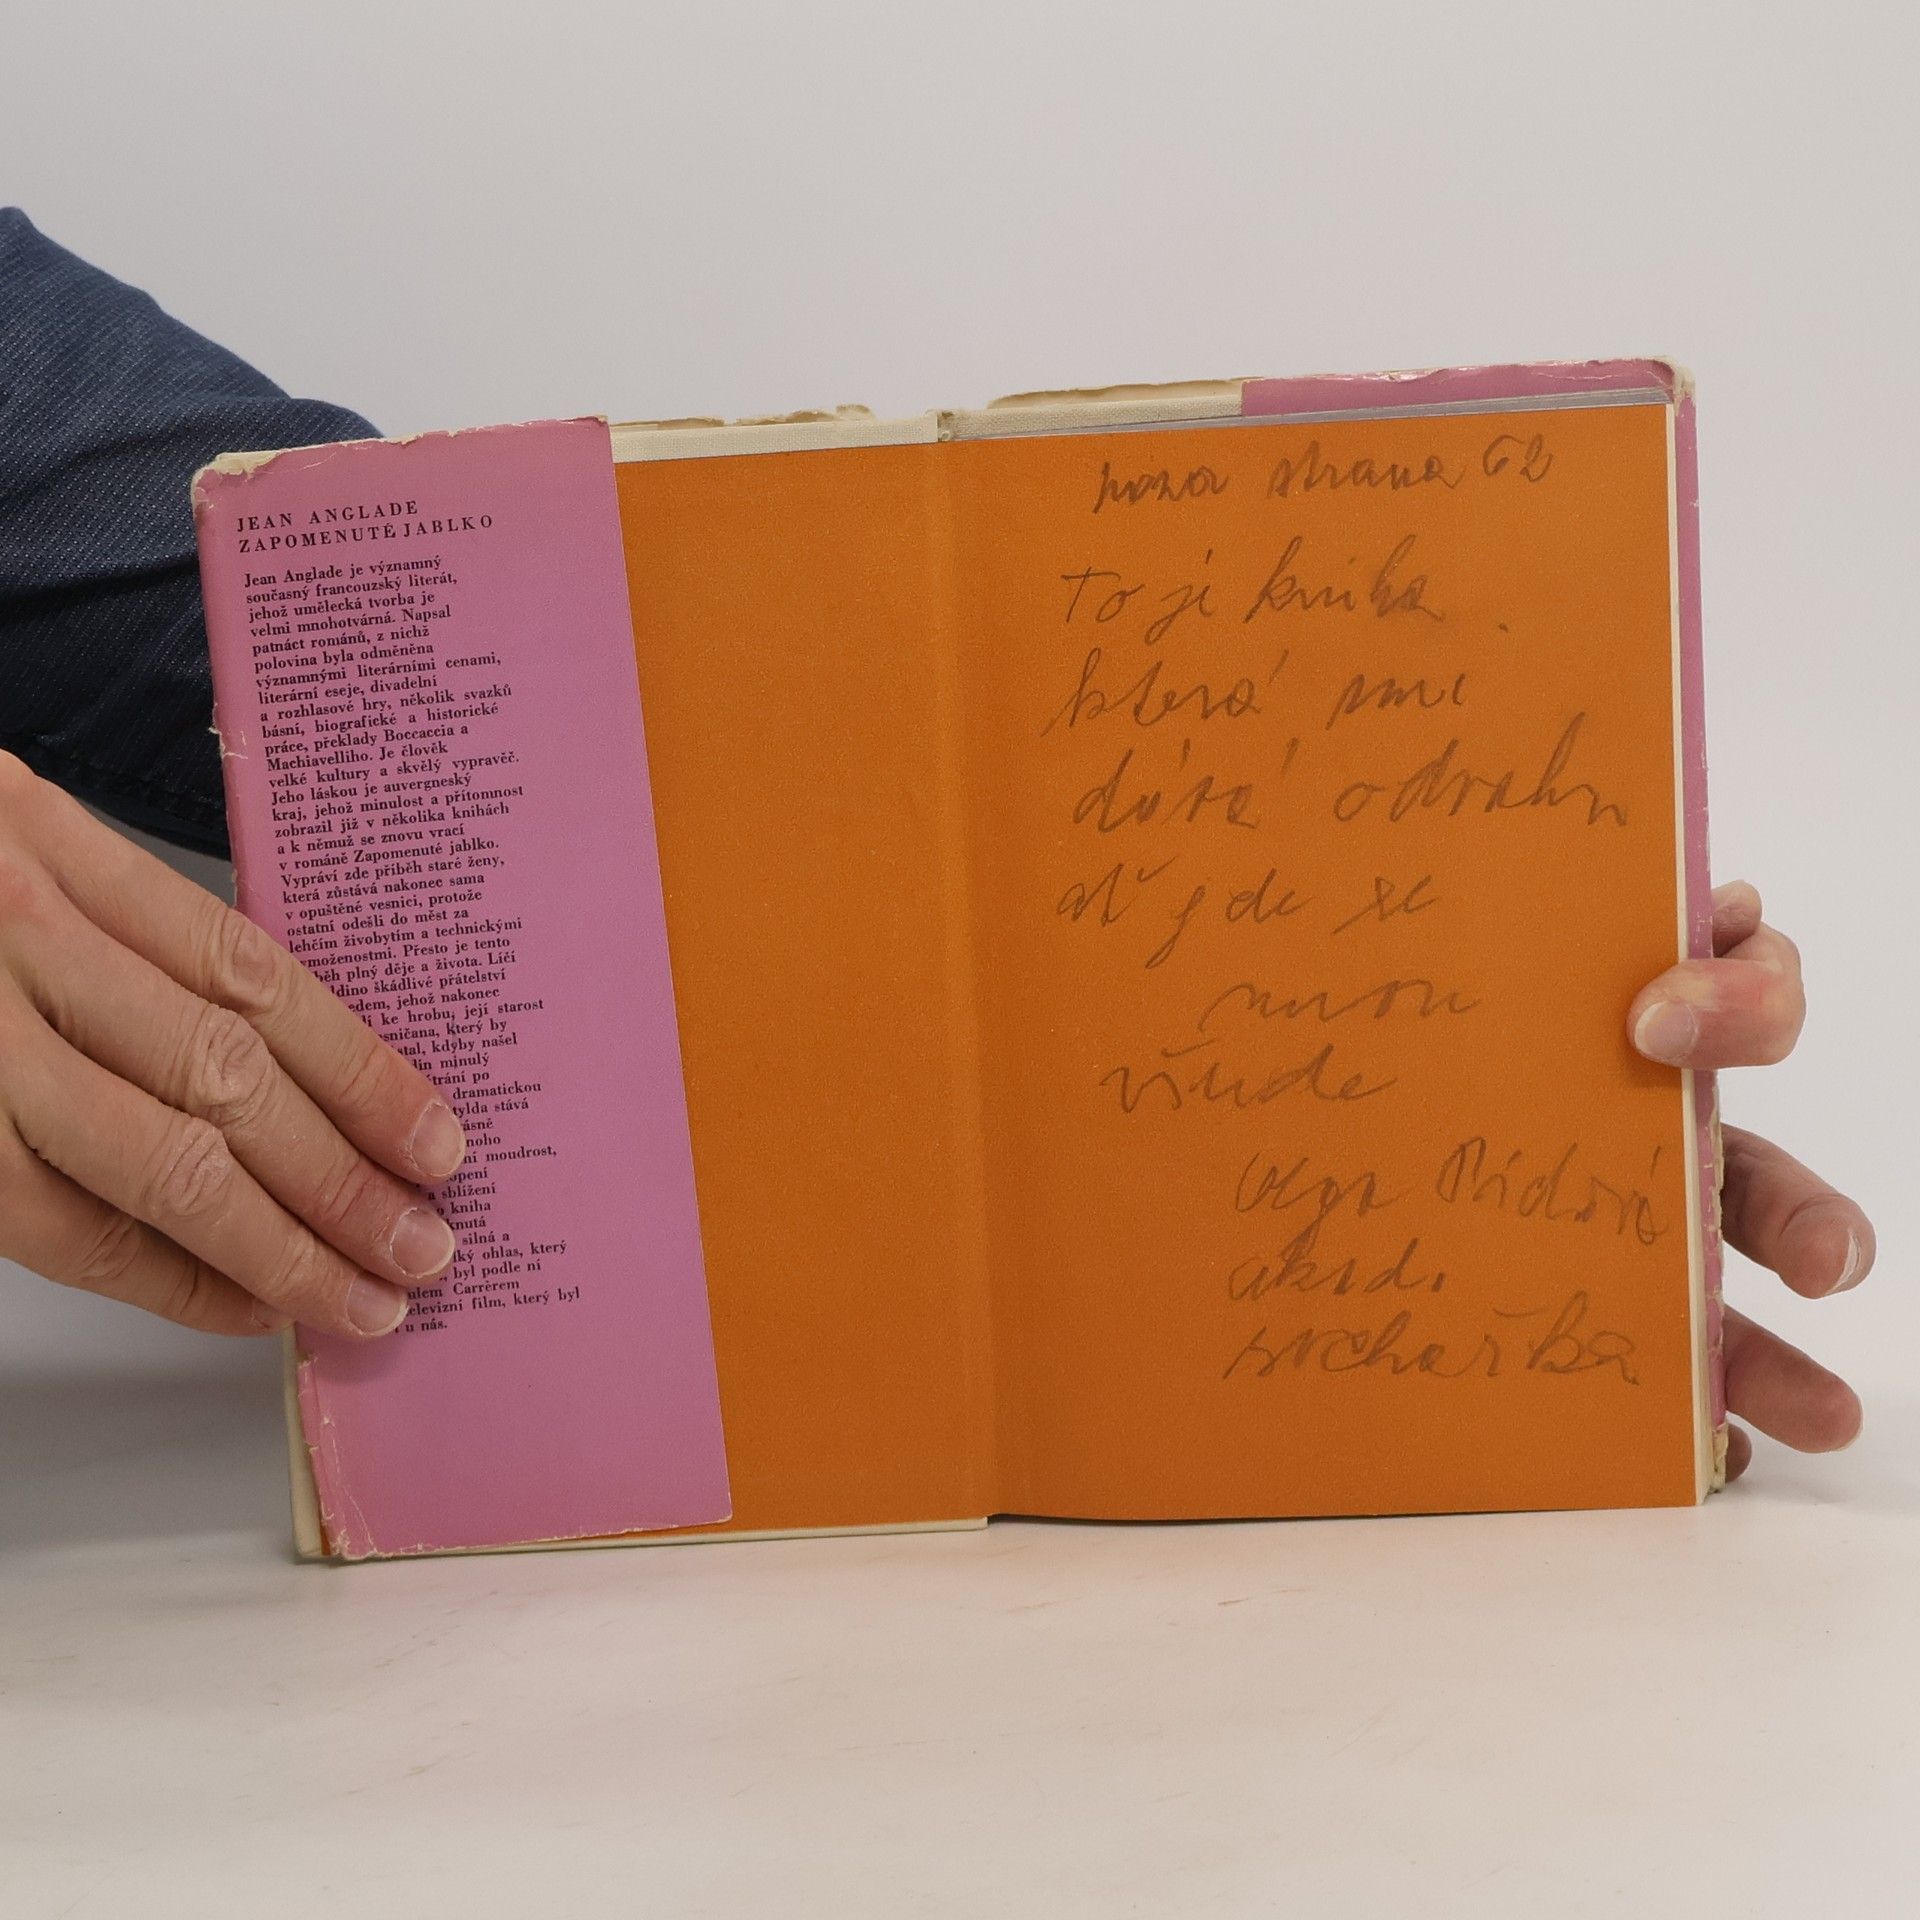 JEAN ANGLADE
ZAPOMENUTÉ JABLKO
Jean Anglade je významný
současný francouzský literát,
jehož umělecká tvorba je
velmi mnohotvárná. Napsal
patnáct románů, z nichž
polovina byla odměněna
významnými literárními cenami,
literární eseje, divadelní
a rozhlasové hry, několik svazků
básní, biografické a historické
práce, překlady Boccaccia a
Machiavelliho. Je člověk
velké kultury a skvělý vypravěč.
Jeho láskou je auvergneský
kraj, jehož minulost a přítomnost
zobrazil již v několika knihách
a k němuž se znovu vrací
v románě Zapomenuté jablko.
Vypráví zde příběh staré ženy,
která zůstává nakonec sama
v opuštěné vesnici, protože
ostatní odešli do měst za
lehčím živobytím a technickými
vymoženostmi. Přesto je tento
běh plný děje a života. Líčí
ldino škádlivé přátelství
edem, jehož nakonec
dí ke hrobu, její starost
sničana, který by
stal, kdyby našel
din minulý
trání po
dramatickou
tylda stává
ásně
noho
ní moudrost,
opení
a sblížení
o kniha
knutá
silná a
lký ohlas, který
, byl podle ní
ulem Carrèrem
elevizní film, který byl
i u nás.
pozor strana 62
To je kniha
která mi
dává odvahu
ať jde se
mnou
všude
Olga
akad.
sochařka